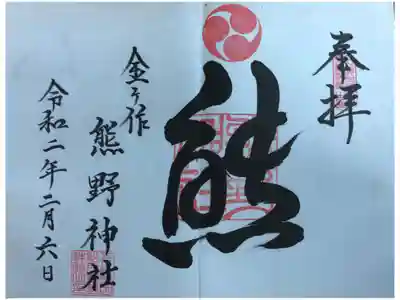 奉拝
熊
金ヶ作
熊野神社
令和二年二月六日